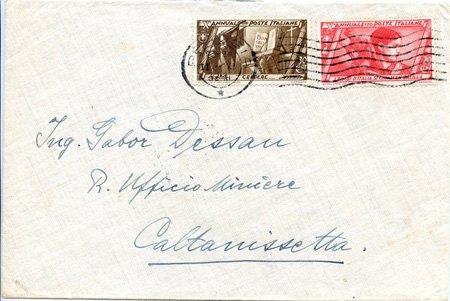 ANNUALE POSTE ITALIANE
CREDERE
ANNUALE POSTE ITALIANE
Ing. Gabor Dessan
R. Ufficio Miniere
Caltanissetta.